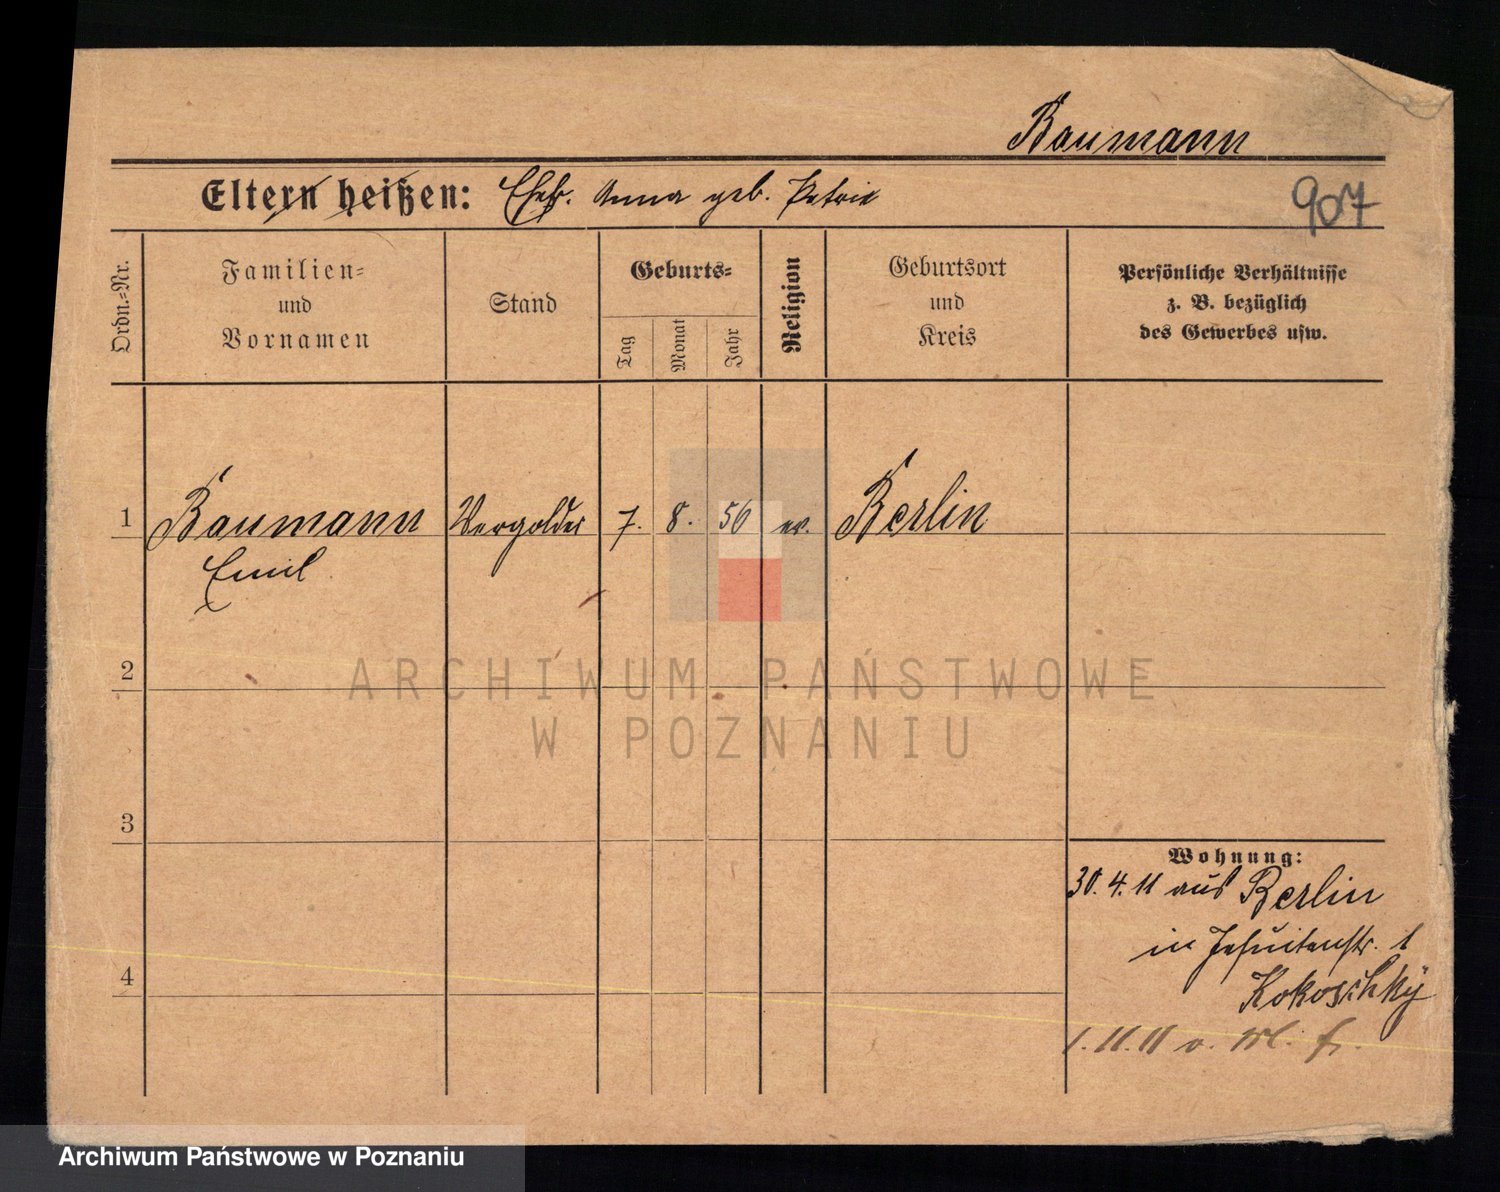 Baumann
Eltern heißen: Ehefr. Anna geb. Petrie
907
Ordn.=Nr.
Familien=
und
Vornamen
Stand
Geburts=
Tag
Monat
Jahr
Religion
Geburtsort
und
Kreis
Persönliche Verhältnisse
z. B. bezüglich
des Gewerbes usw.
1 Baumann Vergolder 7. 8. 56 ev. Berlin
Emil
2
3
4
Wohnung:
30.4.11 aus Berlin
in Jesuitenstr. 1
Kokoschky
1.11.11 v.
ARCHIWUM PAŃSTWOWE
W POZNANIU
Archiwum Państwowe w Poznaniu